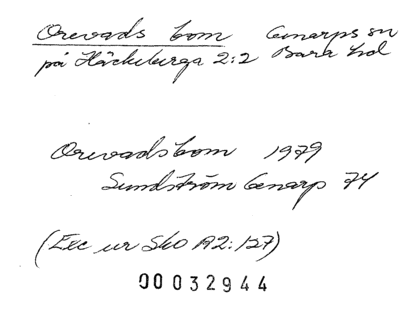 Orevads bom Genarps sn
på Häckeberga 2:2 Bara hd
Orevadsbom 1979
Sundström Genarp 74
(Exc ur Sko A2:127)
00032944